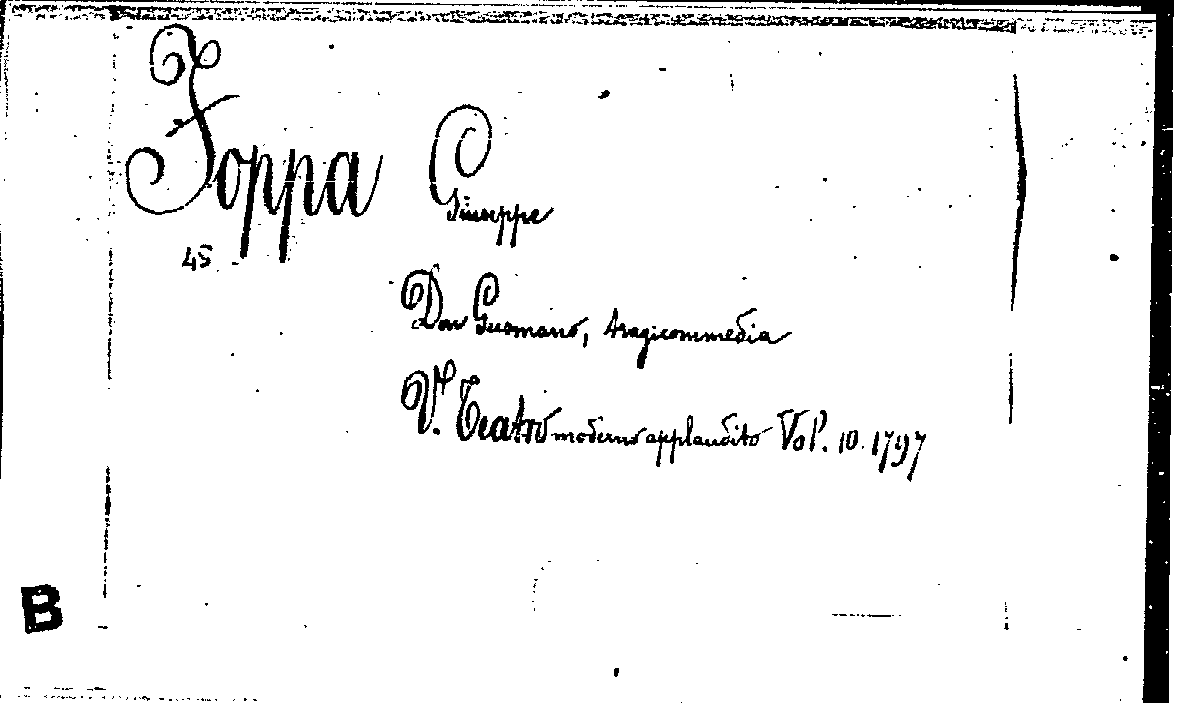 Foppa Giuseppe
45
Don Gusmano, tragicommedia
V. Teatro moderno applaudito Vol. 10. 1797
B